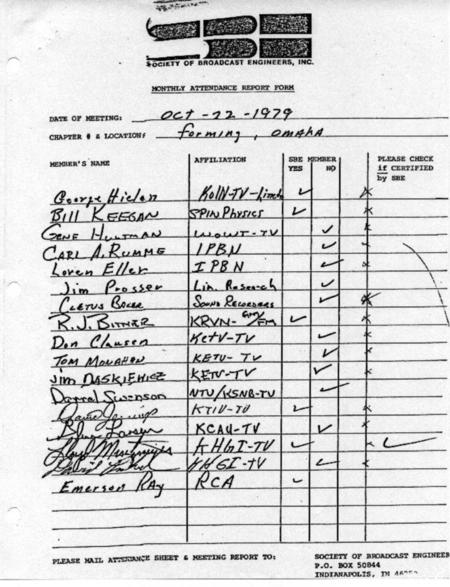 SOCIETY OF BROADCAST ENGINEERS, INC.
MONTHLY ATTENDANCE REPORT FORM
DATE OF MEETING: OCT-22-1979
CHAPTER # & LOCATION: forming, OMAHA
MEMBER'S NAME AFFILIATION SBE MEMBER YES NO PLEASE CHECK if CERTIFIED by SBE
George KOLN-TV-
BILL KEEGAN SPIN PHYSICS
GENE HULTMAN WOWT-TV
CARL A. RUMME IPBN
Loren Eller IPBN
Jim Prosser Lin. Research
CLETUS SOUND RECORDERS
R.J. BITNER KRVN-AM/FM
Don Clausen KETV-TV
TOM MONAHAN KETV-TV
JIM DASKIEWICZ KETV-TV
Darrel Swenson NTV/KSNB-TV
KTIV-TV
KCAU-TV
KHGI-TV
KHGI-TV
Emerson RAY RCA
PLEASE MAIL ATTENDANCE SHEET & MEETING REPORT TO: SOCIETY OF BROADCAST ENGINEER
P.O. BOX 50844
INDIANAPOLIS, IN